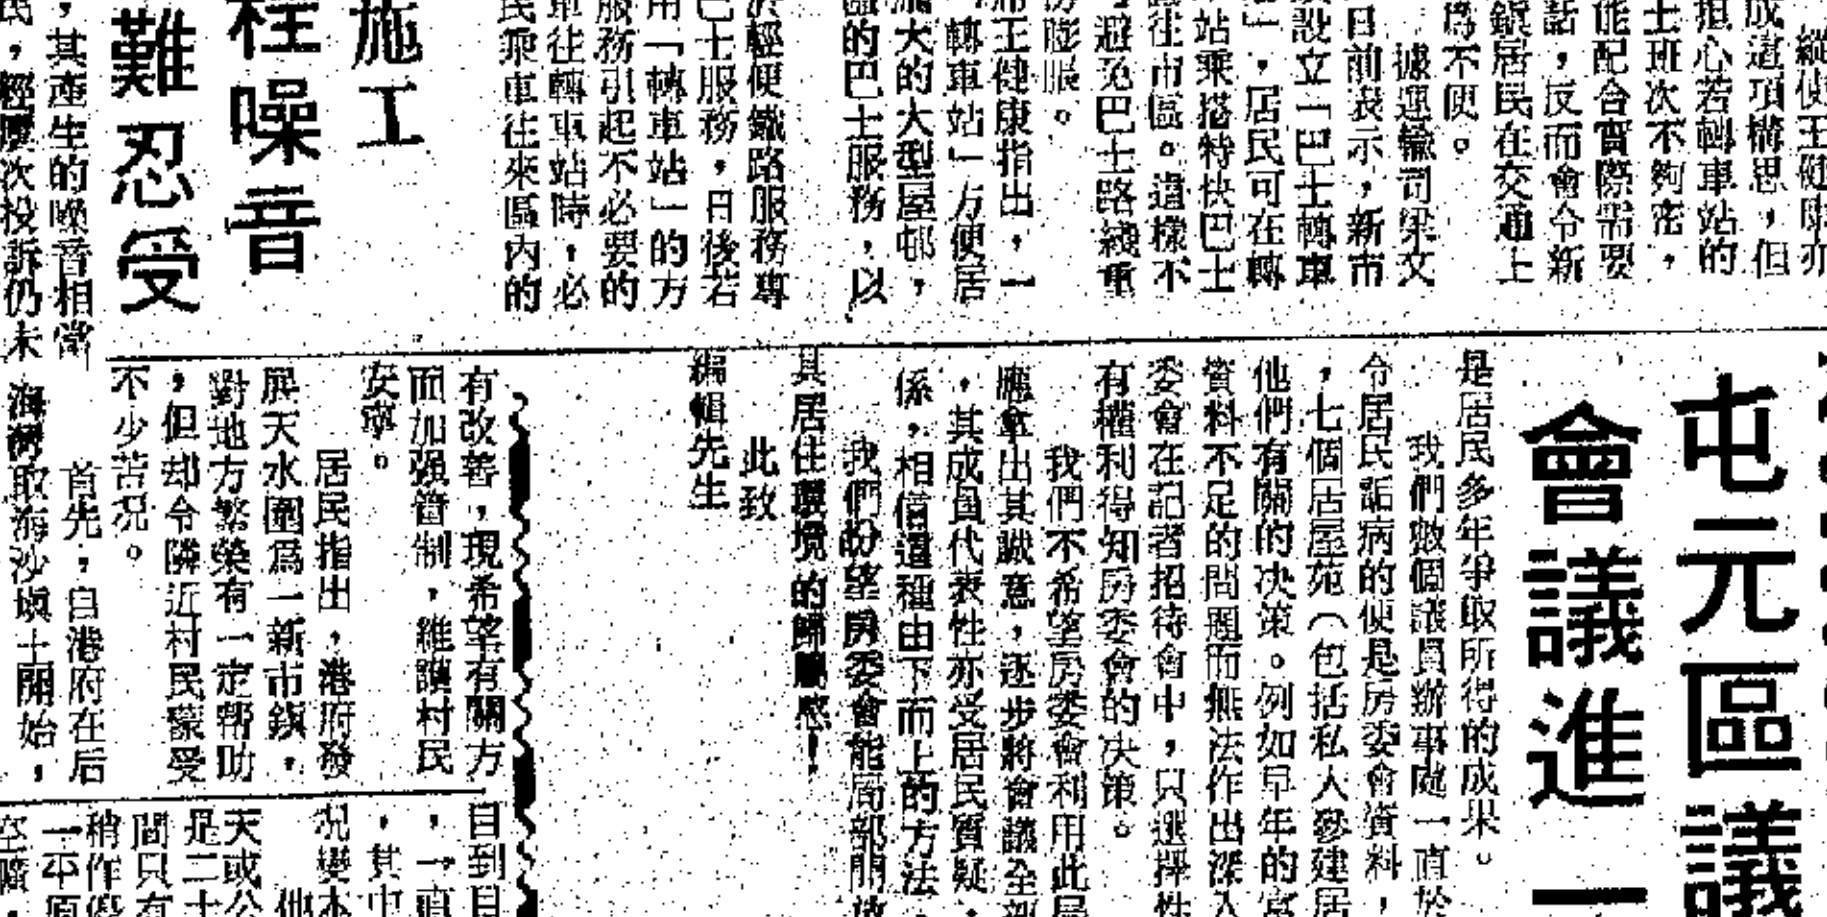 縱使王健康亦
成這項構思，但
担心若轉車站的
士班次不夠密，
能配合實際需要
話，反而會令新
鎮居民在交通上
爲不便。
據運輸司梁文
日前表示，新市
設立「巴士轉車
」，居民可在轉
站乘搭特快巴士
往市區。這樣不
避免巴士路綫重
膨脹。
王健康指出，一
「轉車站」方便居
大的大型屋邨，
的巴士服務，以
輕便鐵路服務專
巴士服務，日後若
用「轉車站」的方
服務引起不必要的
車往轉車站時，必
民乘車往來區內的
施工
程噪音
難忍受
，其產生的噪音相當
民，經屢次投訴仍未
屯元區議
會議進一
是居民多年爭取所得的成果。
我們數個議員辦事處一直於
令居民詬病的便是房委會資料，
，七個居屋苑（包括私人參建居
他們有關的决策。例如早年的富
資料不足的問題而無法作出深入
委會在記者招待會中，只選擇性
有權利得知房委會的决策。
我們不希望房委會利用此局
應拿出其誠意，逐步將會議全部
，其成員代表性亦受居民質疑，
係，相信這種由下而上的方法，
我們盼望房委會能局部開放
其居住環境的歸屬感！
此致
編輯先生
有改善，現希望有關方
而加强管制，維護村民
安寧。
居民指出，港府發
展天水圍爲一新市鎮，
對地方繁榮有一定幫助
，但却令隣近村民蒙受
不少苦况。
首先，自港府在后
海灣取海沙塡土開始，
自到目
，一直
，其中
况變本
他
天或公
是二十
間只有
稍作
一平原
空曠，